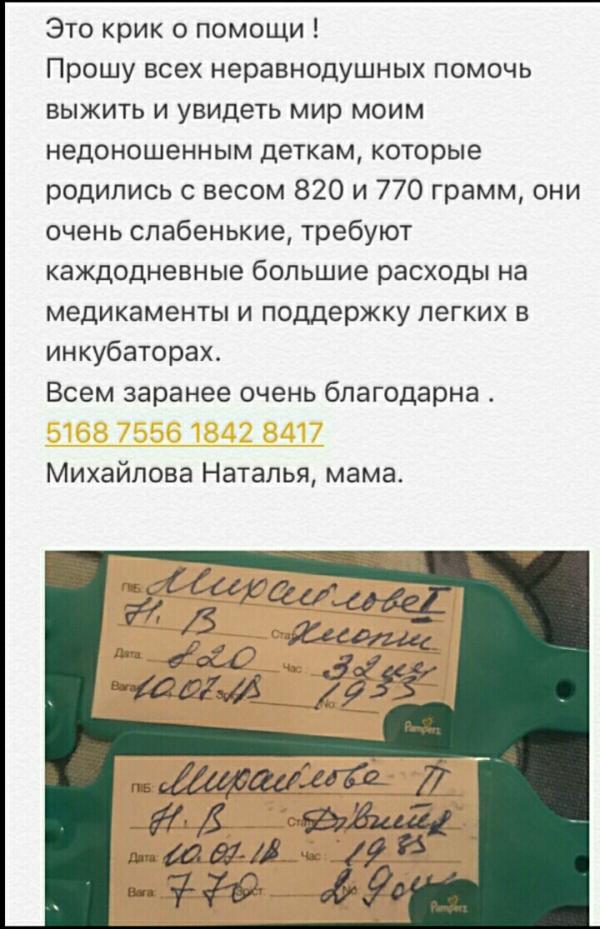 Это крик о помощи !
Прошу всех неравнодушных помочь
выжить и увидеть мир моим
недоношенным деткам, которые
родились с весом 820 и 770 грамм, они
очень слабенькие, требуют
каждодневные большие расходы на
медикаменты и поддержку легких в
инкубаторах.
Всем заранее очень благодарна .
5168 7556 1842 8417
Михайлова Наталья, мама.
ПІБ: Михайлова I
Н. В Ста Хлопчик
Дата: 820 Час : 32 см
Вага 10.07.18 1935
Pampers
ПІБ: Михайлова II
Н. В Ста Дівчина
Дата: 10.07.18 Час : 1935
Вага: 770 Зріст: 29 см
Pampers